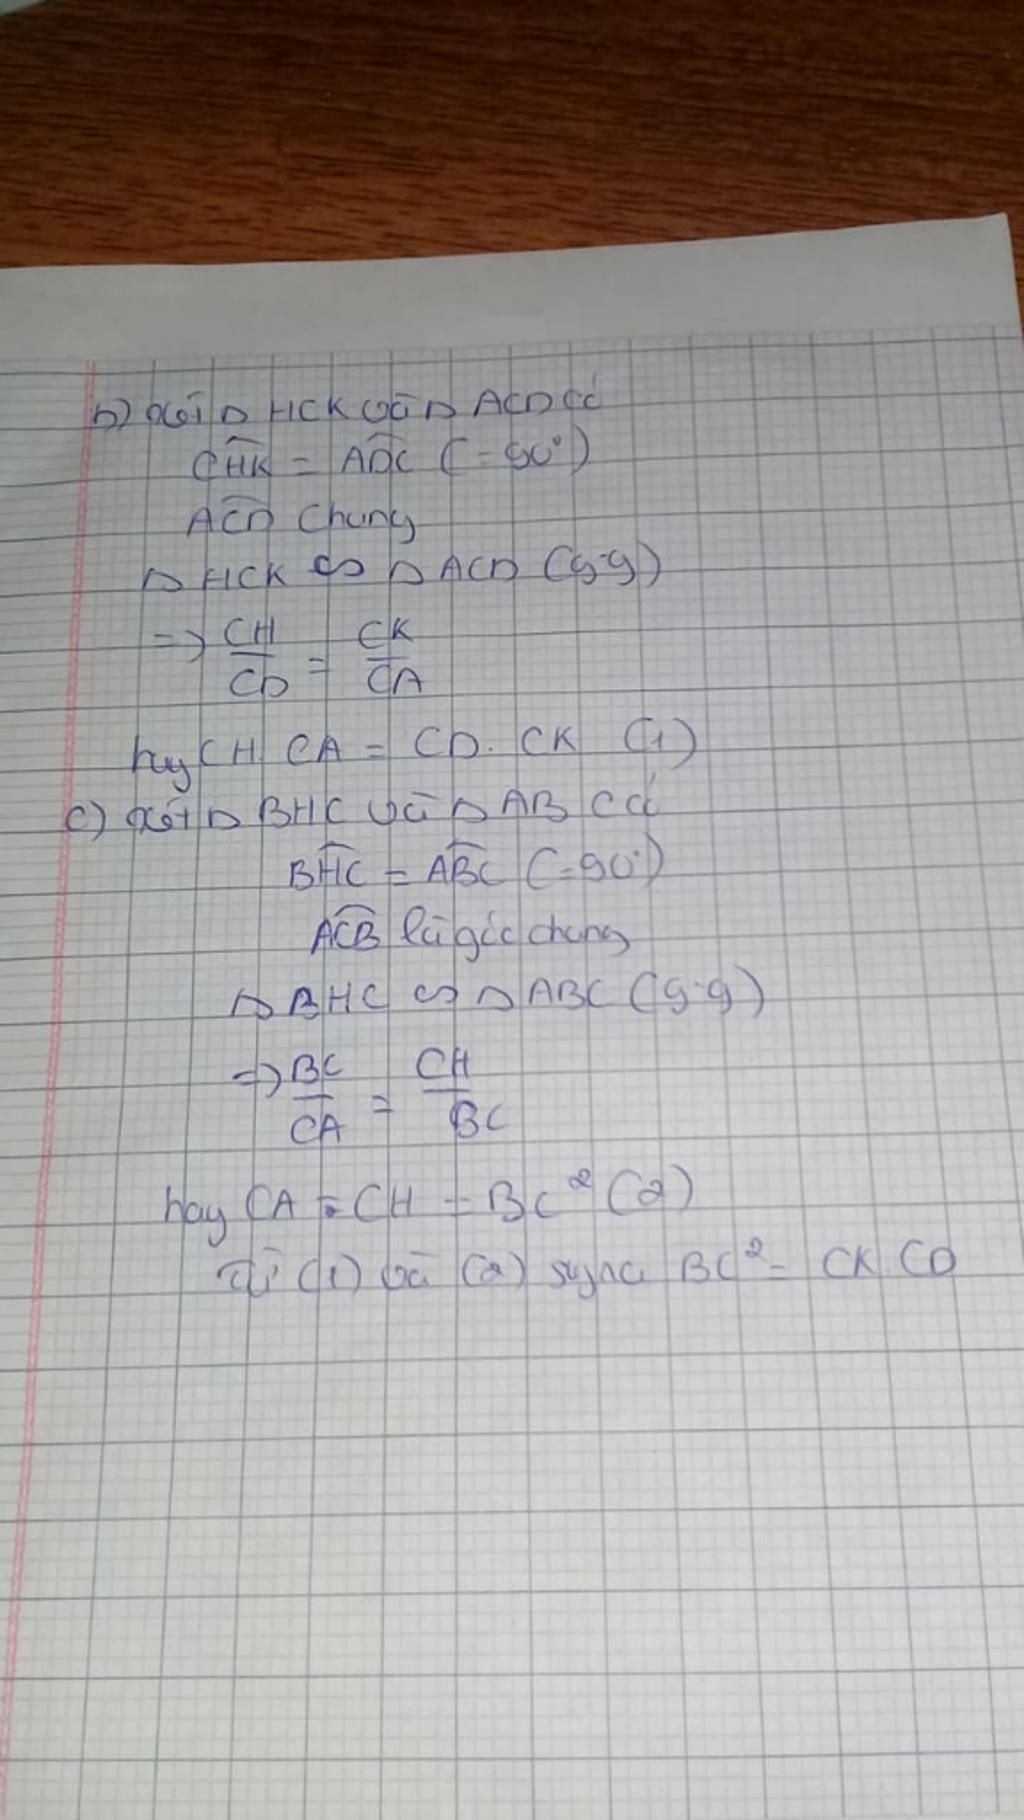 b) Xét Δ HCK và Δ ACD có
CHK = ADC (= 90°)
ACD chung
Δ HCK ∽ Δ ACD (g-g)
=> CH/CD = CK/CA
hay CH. CA = CD. CK (1)
c) Xét Δ BHC và Δ ABC có
BHC = ABC (= 90°)
ACB là góc chung
Δ BHC ∽ Δ ABC (g-g)
=> BC/CA = CH/BC
hay CA . CH = BC² (2)
Từ (1) và (2) suy ra BC² = CK CD